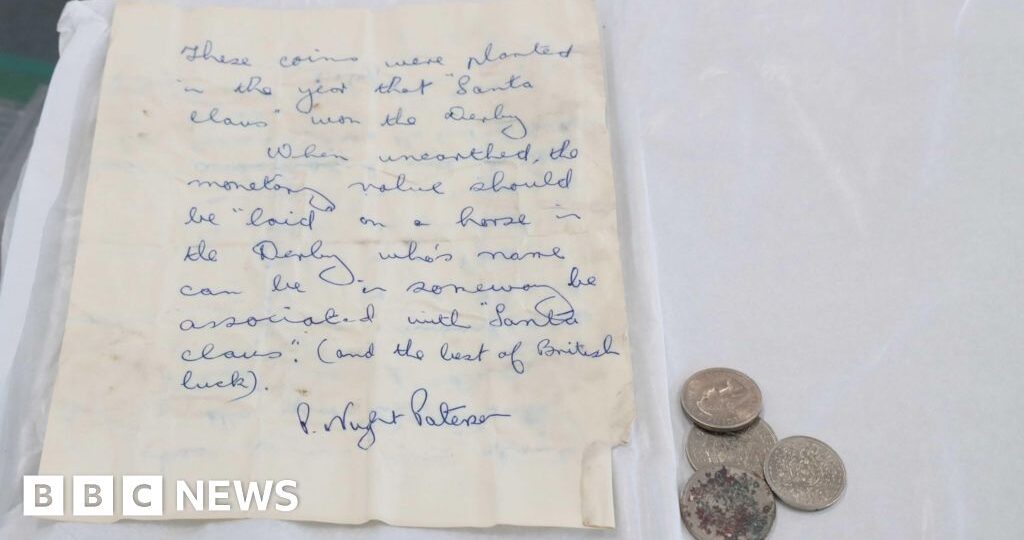 These coins were planted
in the year that "Santa
claus" won the Derby
When unearthed, the
monetary value should
be "laid" on a horse in
the Derby who's name
can be in someway be
associated with "Santa
claus". (and the best of British
luck).
P. Paterson
BBC NEWS